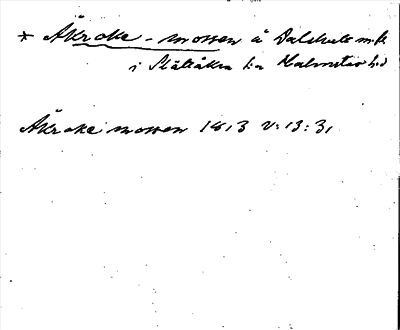 * Åkroke-mossen å Dalshults mk
i Slättåkra sn Halmstads hd
Åkroke mossen 1813 V:13:31